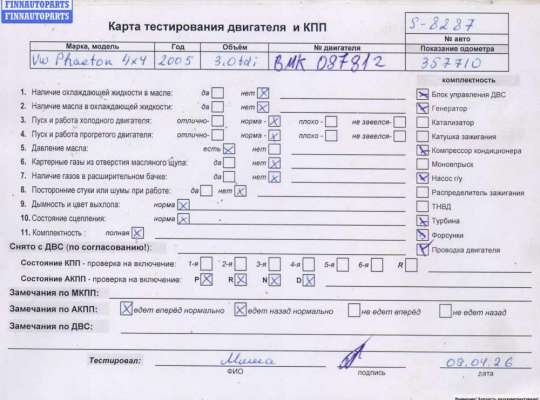 FINNAUTOPARTS
FINNAUTOPARTS
Карта тестирования двигателя и КПП
S-8287
№ авто
Марка, модель Год Объём № двигателя Показание одометра
VW Phaeton 4x4 2005 3.0tdi BMK 087812 357710
комплектность
1. Наличие охлаждающей жидкости в масле: да нет
2. Наличие масла в охлаждающей жидкости: да нет
3. Пуск и работа холодного двигателя: отлично- норма - плохо - не завелся-
4. Пуск и работа прогретого двигателя: отлично- норма - плохо - не завелся-
5. Давление масла: есть нет
6. Картерные газы из отверстия масляного щупа: да нет
7. Наличие газов в расширительном бачке: да нет
8. Посторонние стуки или шумы при работе: да нет
9. Дымность и цвет выхлопа: норма
10. Состояние сцепления: норма
11. Комплектность : полная
Блок управления ДВС
Генератор
Катализатор
Катушка зажигания
Компрессор кондиционера
Моновпрыск
Насос г/у
Распределитель зажигания
ТНВД
Турбина
Форсунки
Проводка двигателя
Снято с ДВС (по согласованию!):
Состояние КПП - проверка на включение: 1-я 2-я 3-я 4-я 5-я 6-я R
Состояние АКПП - проверка на включение: P R N D
Замечания по МКПП:
Замечания по АКПП: едет вперёд нормально едет назад нормально не едет вперёд не едет назад
Замечания по ДВС:
Тестировал: Миша 09.04.26
ФИО подпись дата